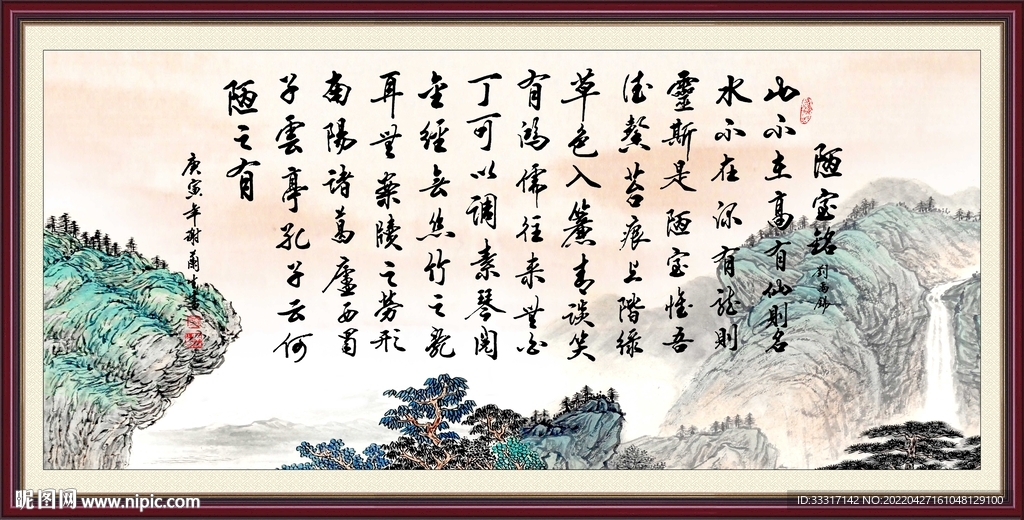 陋室銘 刘禹錫
山不在高有仙則名
水不在深有龍則
靈斯是陋室惟吾
德馨苔痕上階緑
草色入簾青談笑
有鴻儒往来無白
丁可以調素琴閲
金經無丝竹之亂
耳無案牘之劳形
南陽諸葛廬西蜀
子雲亭孔子云何
陋之有
庚寅年謝
昵图网 www.nipic.com
ID:33317142 NO:20220427161048129100